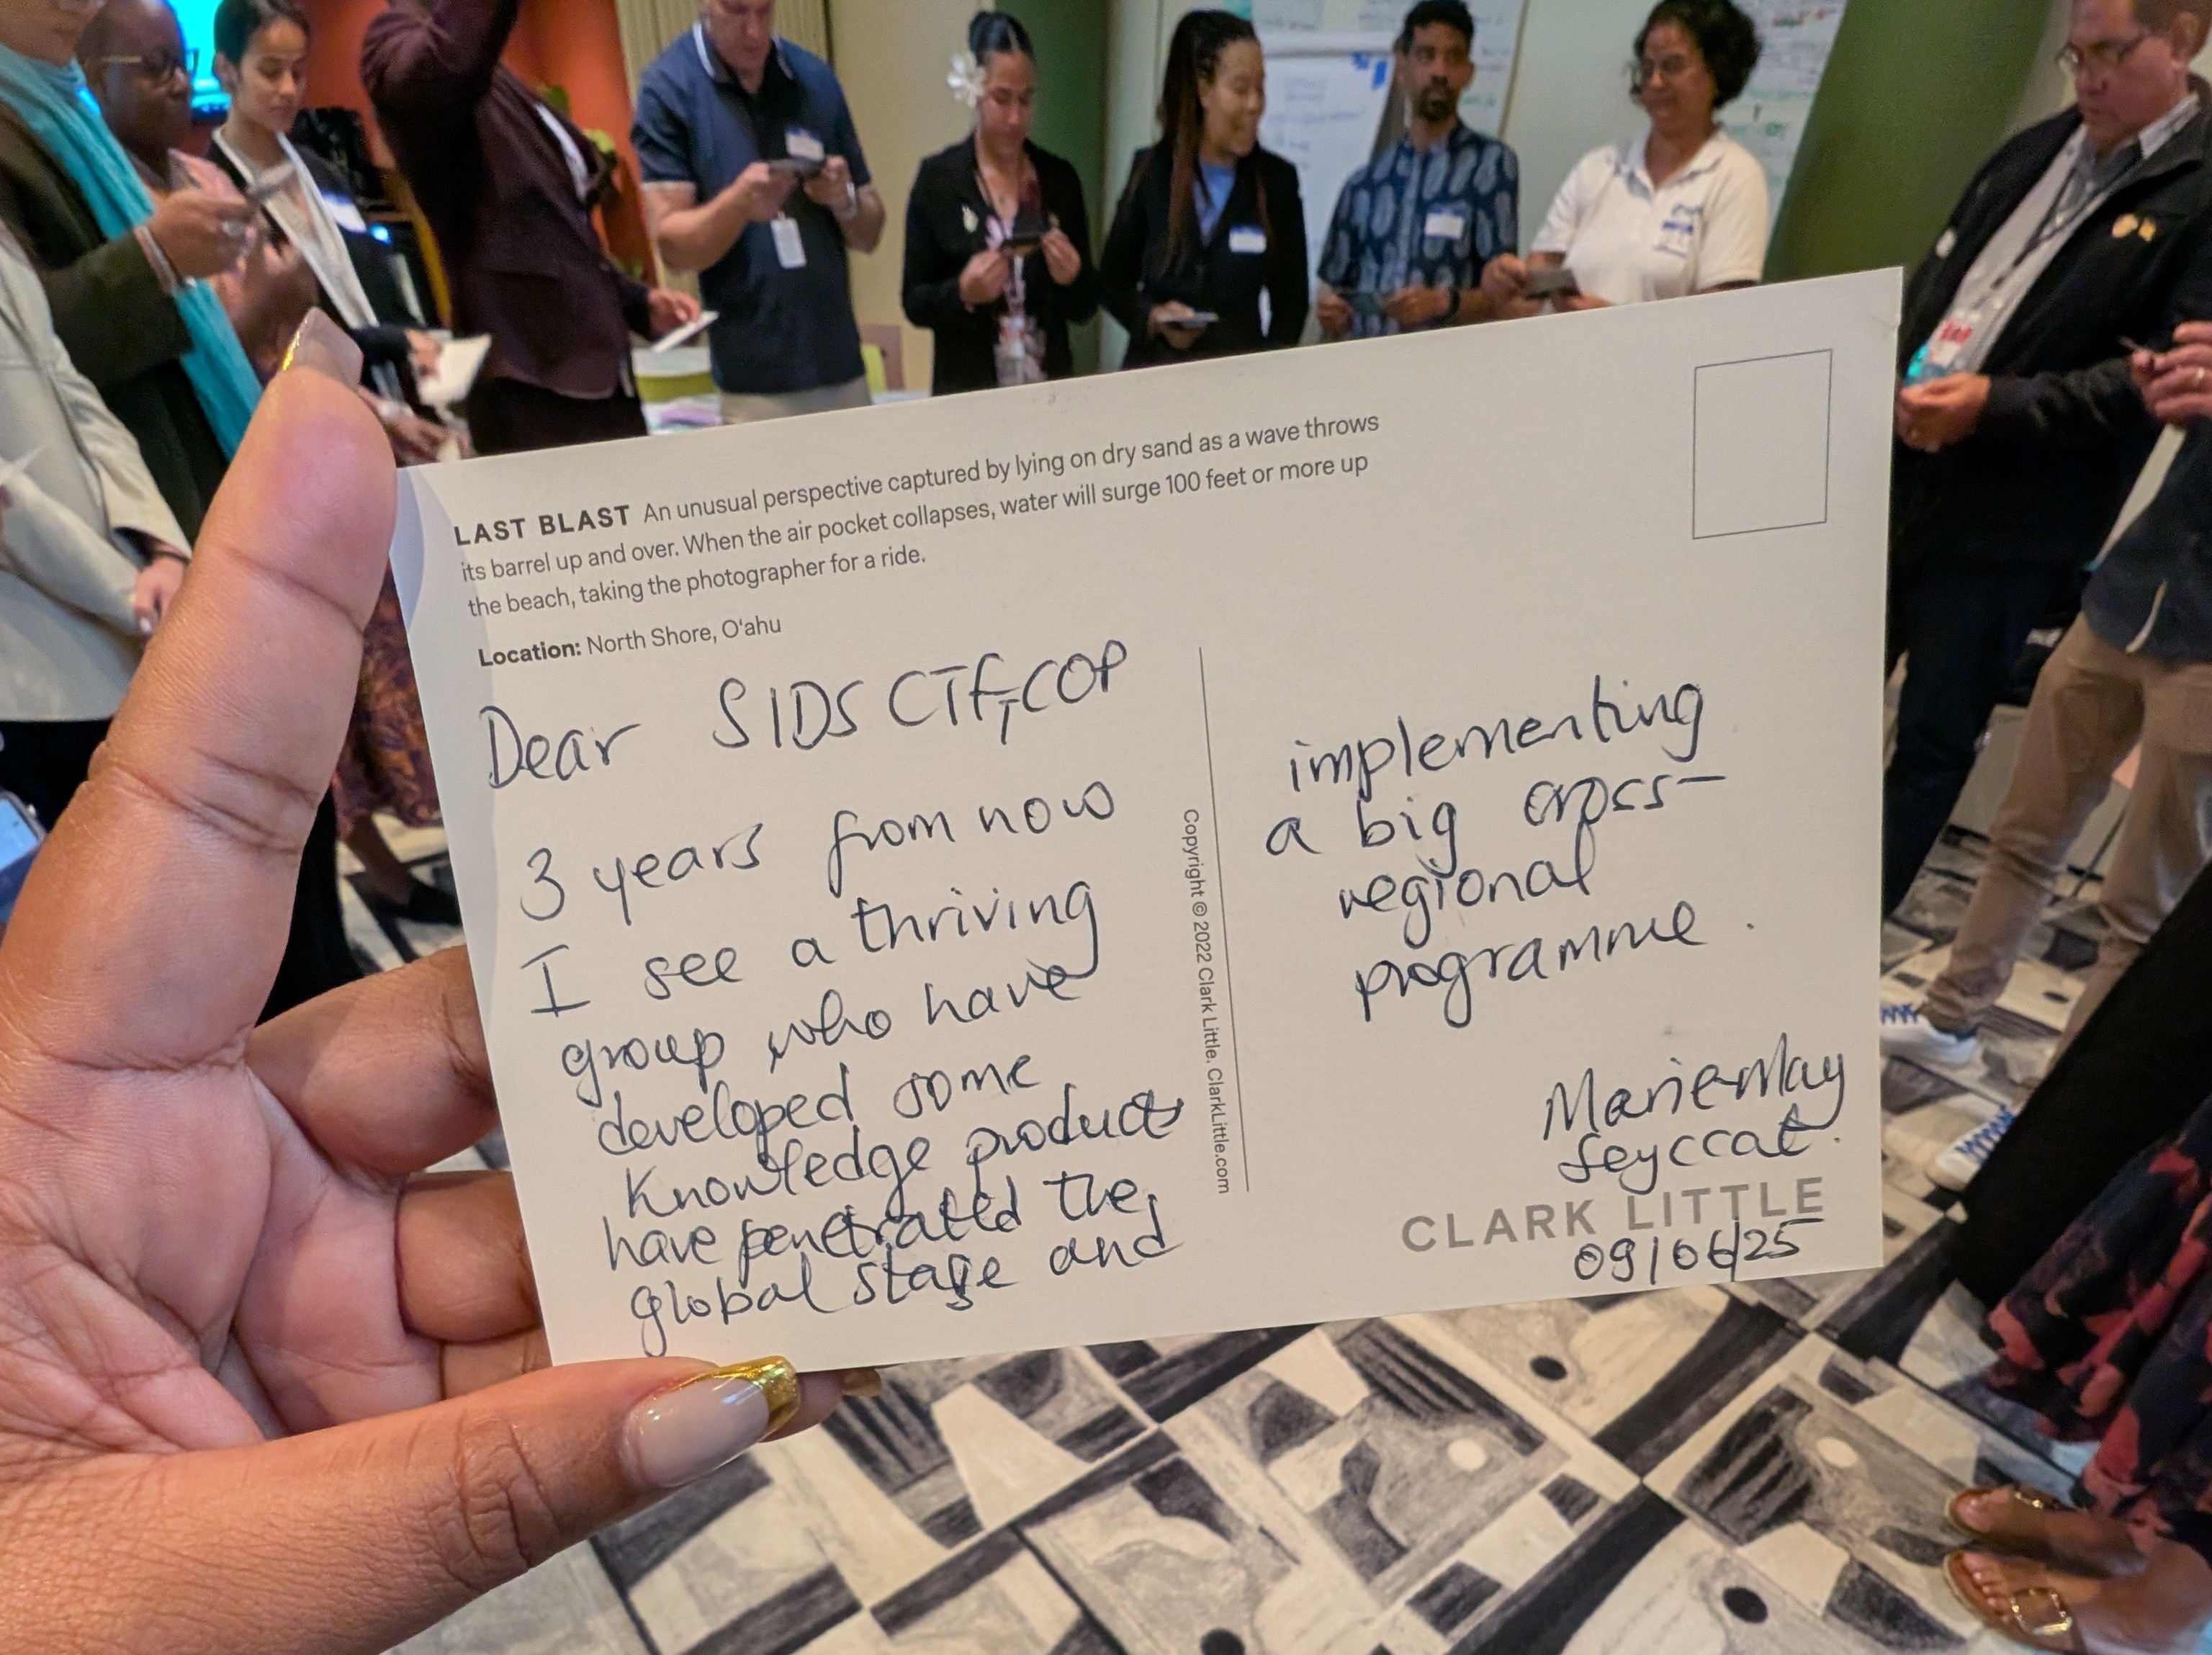 LAST BLAST An unusual perspective captured by lying on dry sand as a wave throws
its barrel up and over. When the air pocket collapses, water will surge 100 feet or more up
the beach, taking the photographer for a ride.
Location: North Shore, Oʻahu
Dear SIDS CTFT COP
3 years from now
I see a thriving
group who have
developed some
knowledge products
have penetrated the
global stage and
Copyright © 2022 Clark Little. ClarkLittle.com
implementing
a big cross-
regional
programme.
Marie-May
Seyccat.
CLARK LITTLE
09/06/25